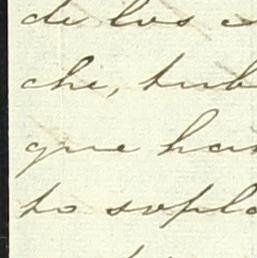 de los
che, tub
que ha
to sopla